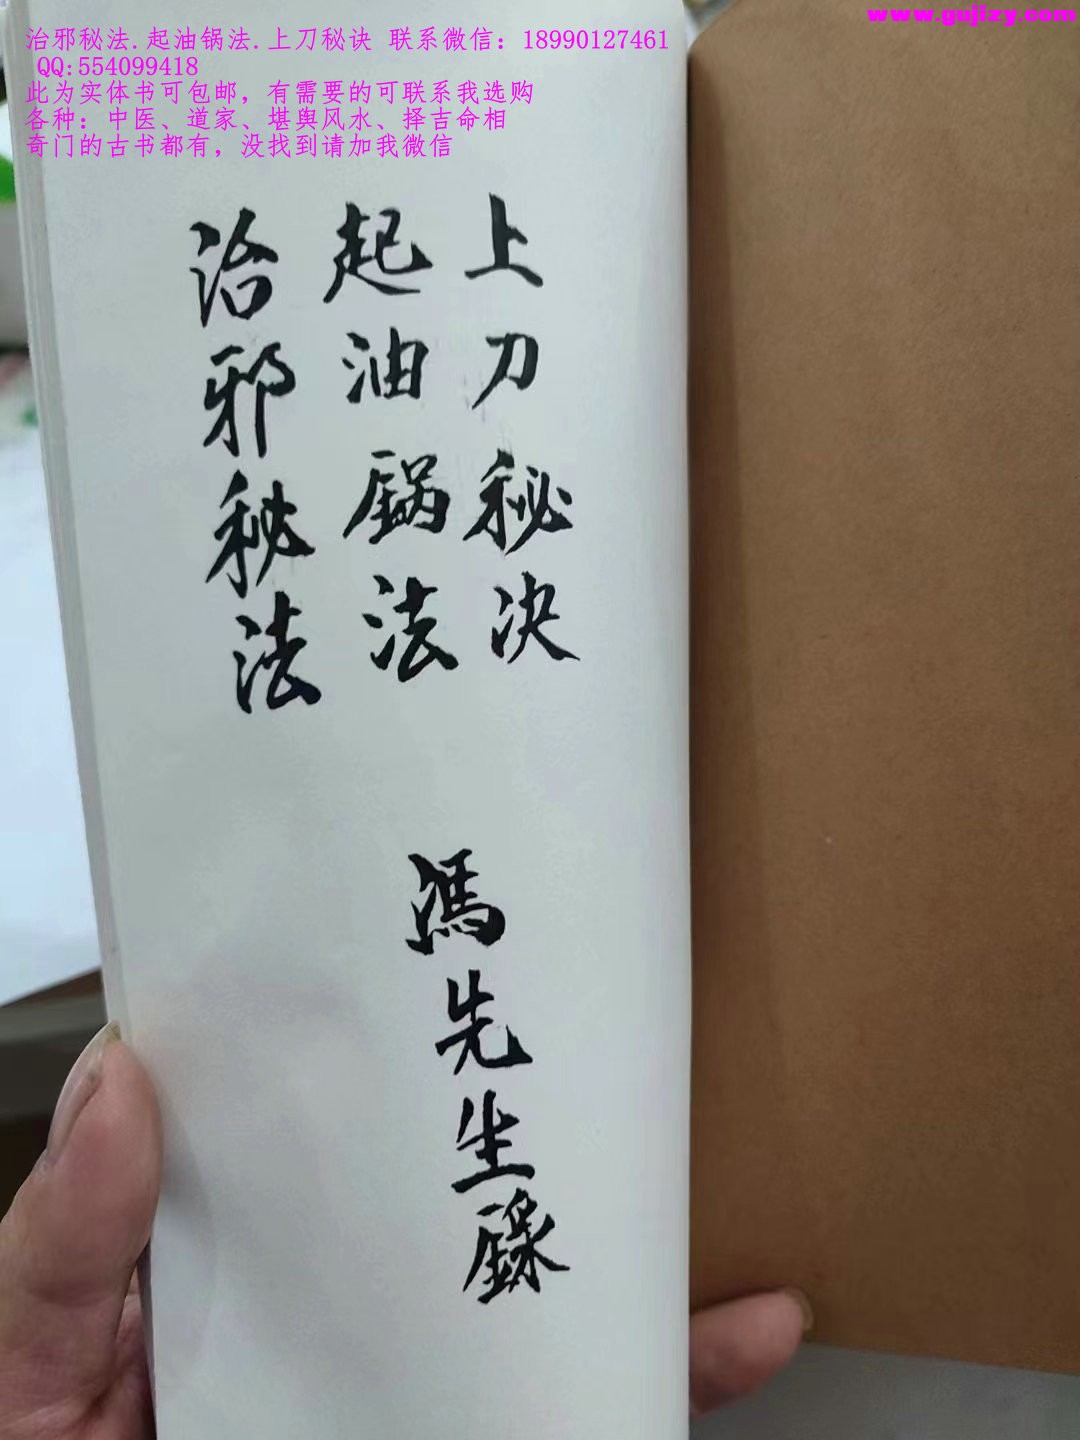 www.gujizy.com
治邪秘法.起油锅法.上刀秘诀 联系微信：18990127461
QQ:554099418
此为实体书可包邮，有需要的可联系我选购
各种：中医、道家、堪舆风水、择吉命相
奇门的古书都有，没找到请加我微信
上刀秘决
起油锅法
治邪秘法
馮先生錄